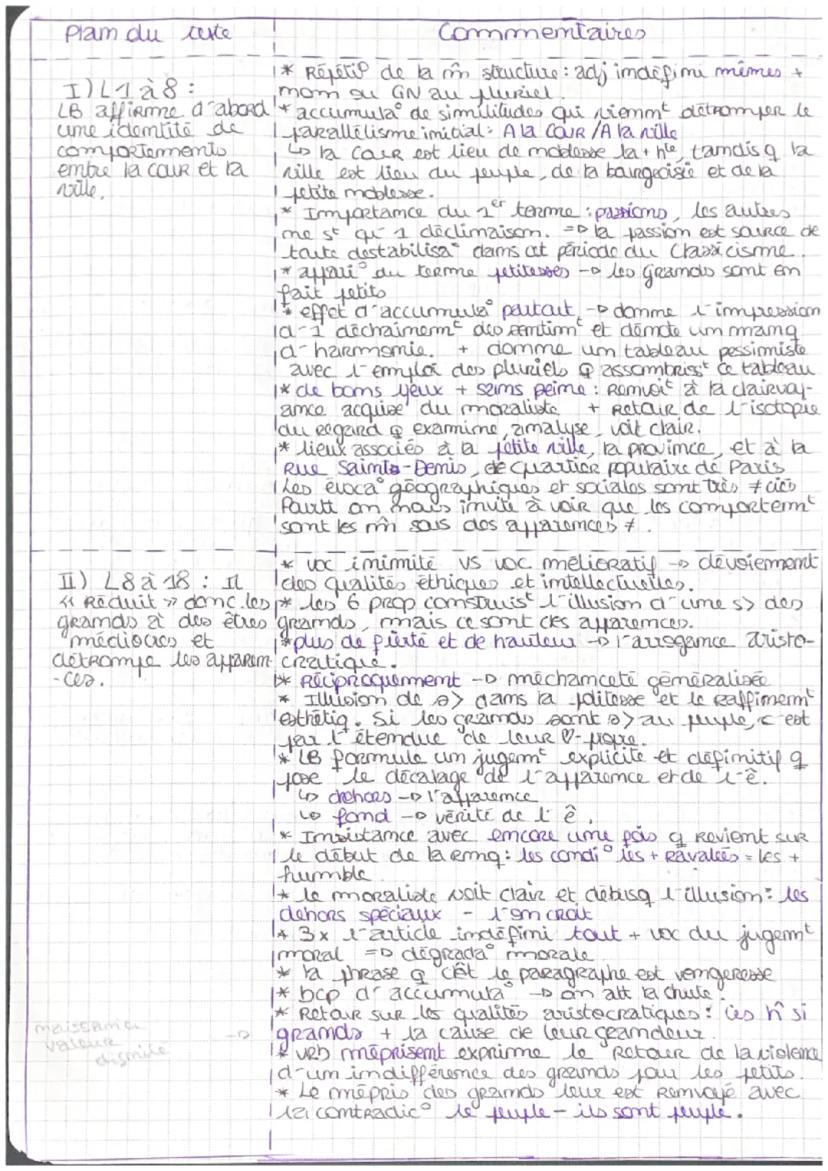 Plan du texte
Commentaires
I) L1 à 8 :
LB affirme d'abord
une identité de
comportements
entre la cour et la
ville.
* Répétit° de la m̂ structure : adj indéfini mêmes +
nom ou GN au pluriel.
* accumula° de similitudes qui viennt détromper le
parallélisme initial : A la cour / A la ville
↳ la cour est lieu de noblesse la + hte, tandis q la
ville est lieu du peuple, de la bourgeoisie et de la
petite noblesse.
* Importance du 1er terme : passions, les autres
ne st qu'1 déclinaison. => la passion est source de
toute destabilisa° dans cet période du Classicisme.
* appari° du terme petitesses -> les Grands sont en
fait petits
* effet d'accumula° partout, -> donne l'impression
d'1 déchainemnt des sentimt et dénote un manq
d'harmonie. + donne un tableau pessimiste
avec l'emploi des pluriels q assombrisst ce tableau
* de bons yeux + sans peine : Renvoit à la clairvoy-
ance acquise du moraliste + Retour de l'isotopie
du regard q examine, analyse, voit clair.
* lieux associés à la petite ville, la province, et à la
Rue Sainte-Denis, de quartier populaire de Paris
Les évoca° géographiques et sociales sont très ≠ ici
Partt on nous invite à voir que les comportemnt
sont les m̂ sous des apparences ≠.
II) L8 à 18 : Il
« Réduit » donc les
grands à des êtres
médiocres et
détrompe les apparen
-ces.
naissance
valeur
->
* voc inimitié vs voc mélioratif -> dévoiement
des qualités éthiques et intellectuelles.
* les 6 prop construist l'illusion d'une s> des
grands, mais ce sont des apparences.
* plus de fierté et de hauteur -> l'arrogance aristo-
cratique.
* Réciproquement -> méchanceté généralisée
* Illusion de s> dans la politesse et le raffinemnt
esthétiq. Si les grands sont s> au peuple, c'est
par l'étendue de leur ♡-propre.
* LB formule un jugemt explicite et définitif q
pose le décalage de l'apparence et de l'ê.
↳ dehors -> l'apparence
↳ fond -> vérité de l'ê.
* Insistance avec encore une fois q revient sur
le début de la rmq : les condi° les + ravalées = les +
humble
* le moraliste voit clair et débusq l'illusion : les
dehors spéciaux - l'on croit
* 3x l'article indéfini tout + voc du jugemt
moral => dégrada° morale
* la phrase q clôt le paragraphe est vengeresse
* bcp d'accumula° -> on att la chute.
* Retour sur les qualités aristocratiques : ces h° si
grands + la cause de leur grandeur.
* verb méprisent exprime le retour de la violence
d'un indifférence des grands pour les petits.
* Le mépris des grands leur est renvoyé avec
la contradic° le peuple - ils sont peuple.